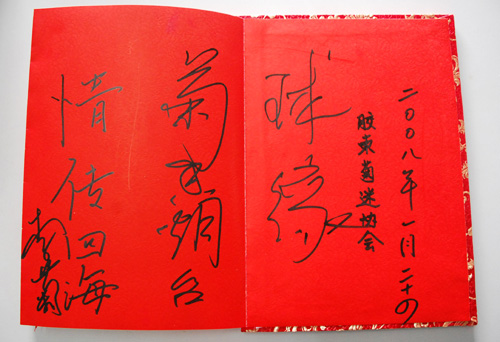 二〇〇八年一月二十四
胶东菊迷协会
球缘
菊烟台
情传四海
李菊